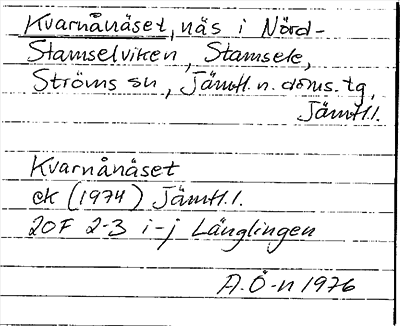 Kvarnånäset, näs i Nörd-
Stamselviken, Stamsele,
Ströms sn, Jämtl. n. doms. tg,
Jämtl.l.
Kvarnånäset
ek (1974) Jämtl.l.
20F 2-3 i-j Länglingen
A.Ö-n 1976